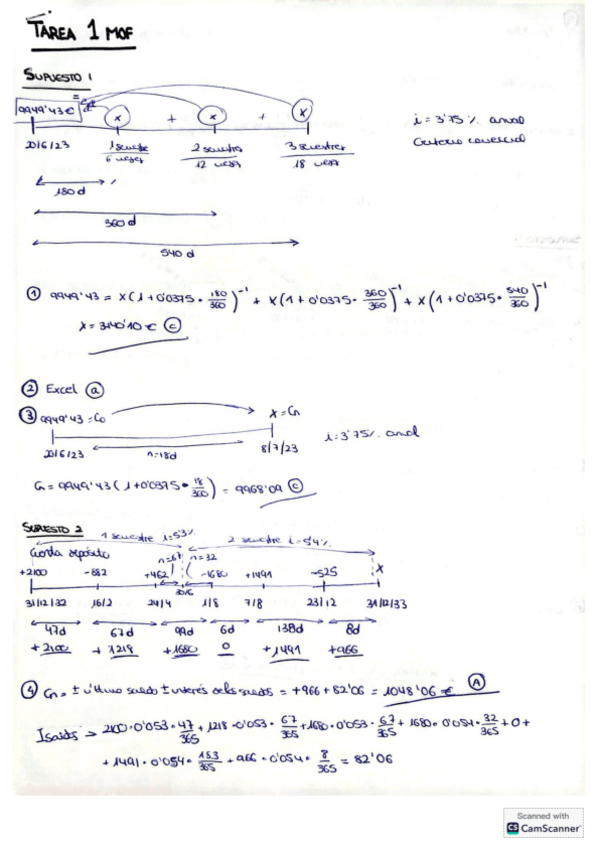 TAREA 1 MOF
SUPUESTO 1
9949'43€ = x + x + x
i = 3'75% anual
20/6/23 1 semestre 2 semestres 3 semestres
6 meses 12 meses 18 meses
Criterio comercial
180 d
360 d
540 d
① 9949'43 = x(1+0'0375 · 180/360)^-1 + x(1+0'0375 · 360/360)^-1 + x(1+0'0375 · 540/360)^-1
x = 3440'10 € ⓒ
② Excel ⓐ
③ 9949'43 = C0 x = Cn
i = 3'75% anual
20/6/23 n=18d 8/7/23
Cn = 9949'43 (1+0'0375 · 18/360) = 9968'09 ⓒ
SUPUESTO 2
1 semestre i=5'3% 2 semestre i=5'4%
depósito n=67 n=32
+2100 -882 +462 -1680 +1491 -525 x
30/6
31/12/32 16/2 24/4 1/8 7/8 23/12 31/12/33
47d 67d 99d 6d 138d 8d
+2100 +1218 +1680 0 +1491 +966
④ Cn = ± último saldo ± interés de los saldos = +966 + 82'06 = 1048'06 € Ⓐ
Isaldos → 2100 · 0'053 · 47/365 + 1218 · 0'053 · 67/365 + 1680 · 0'053 · 67/365 + 1680 · 0'054 · 32/365 + 0 +
+ 1491 · 0'054 · /365 + 966 · 0'054 · 8/365 = 82'06
Scanned with
CS CamScanner